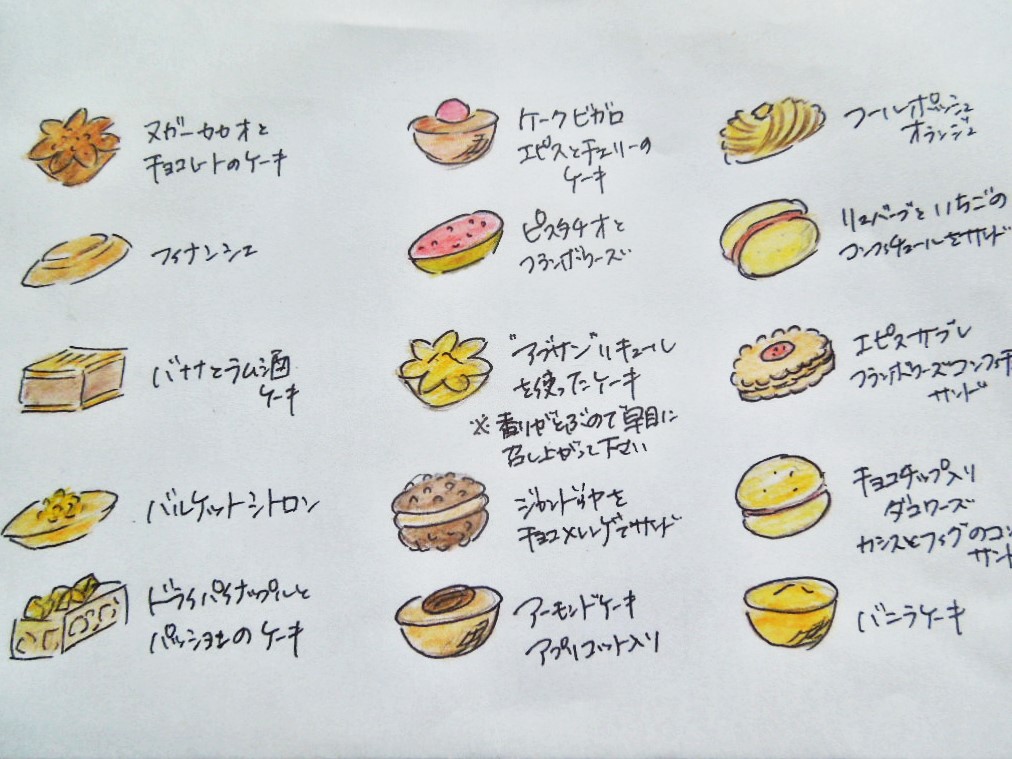 ヌガーカカオと
チョコレートのケーキ
フィナンシェ
バナナとラム酒
ケーキ
バルケットシトロン
ドライパイナップルと
パッションのケーキ
ケークビガロ
エピスとチェリーの
ケーキ
ピスタチオと
フランボワーズ
"アブサン"リキュール
を使ったケーキ
※香りがとぶので早目に
召し上がって下さい
ジャンドゥヤを
チョコメレンゲでサンド
アーモンドケーキ
アプリコット入り
フールポッシュ
オランジュ
リュバーブといちごの
コンフィチュールをサンド
エピスサブレ
フランボワーズコンフィチ
サンド
チョコチップ入り
ダコワーズ
カシスとフィグのコン
サンド
バニラケーキ